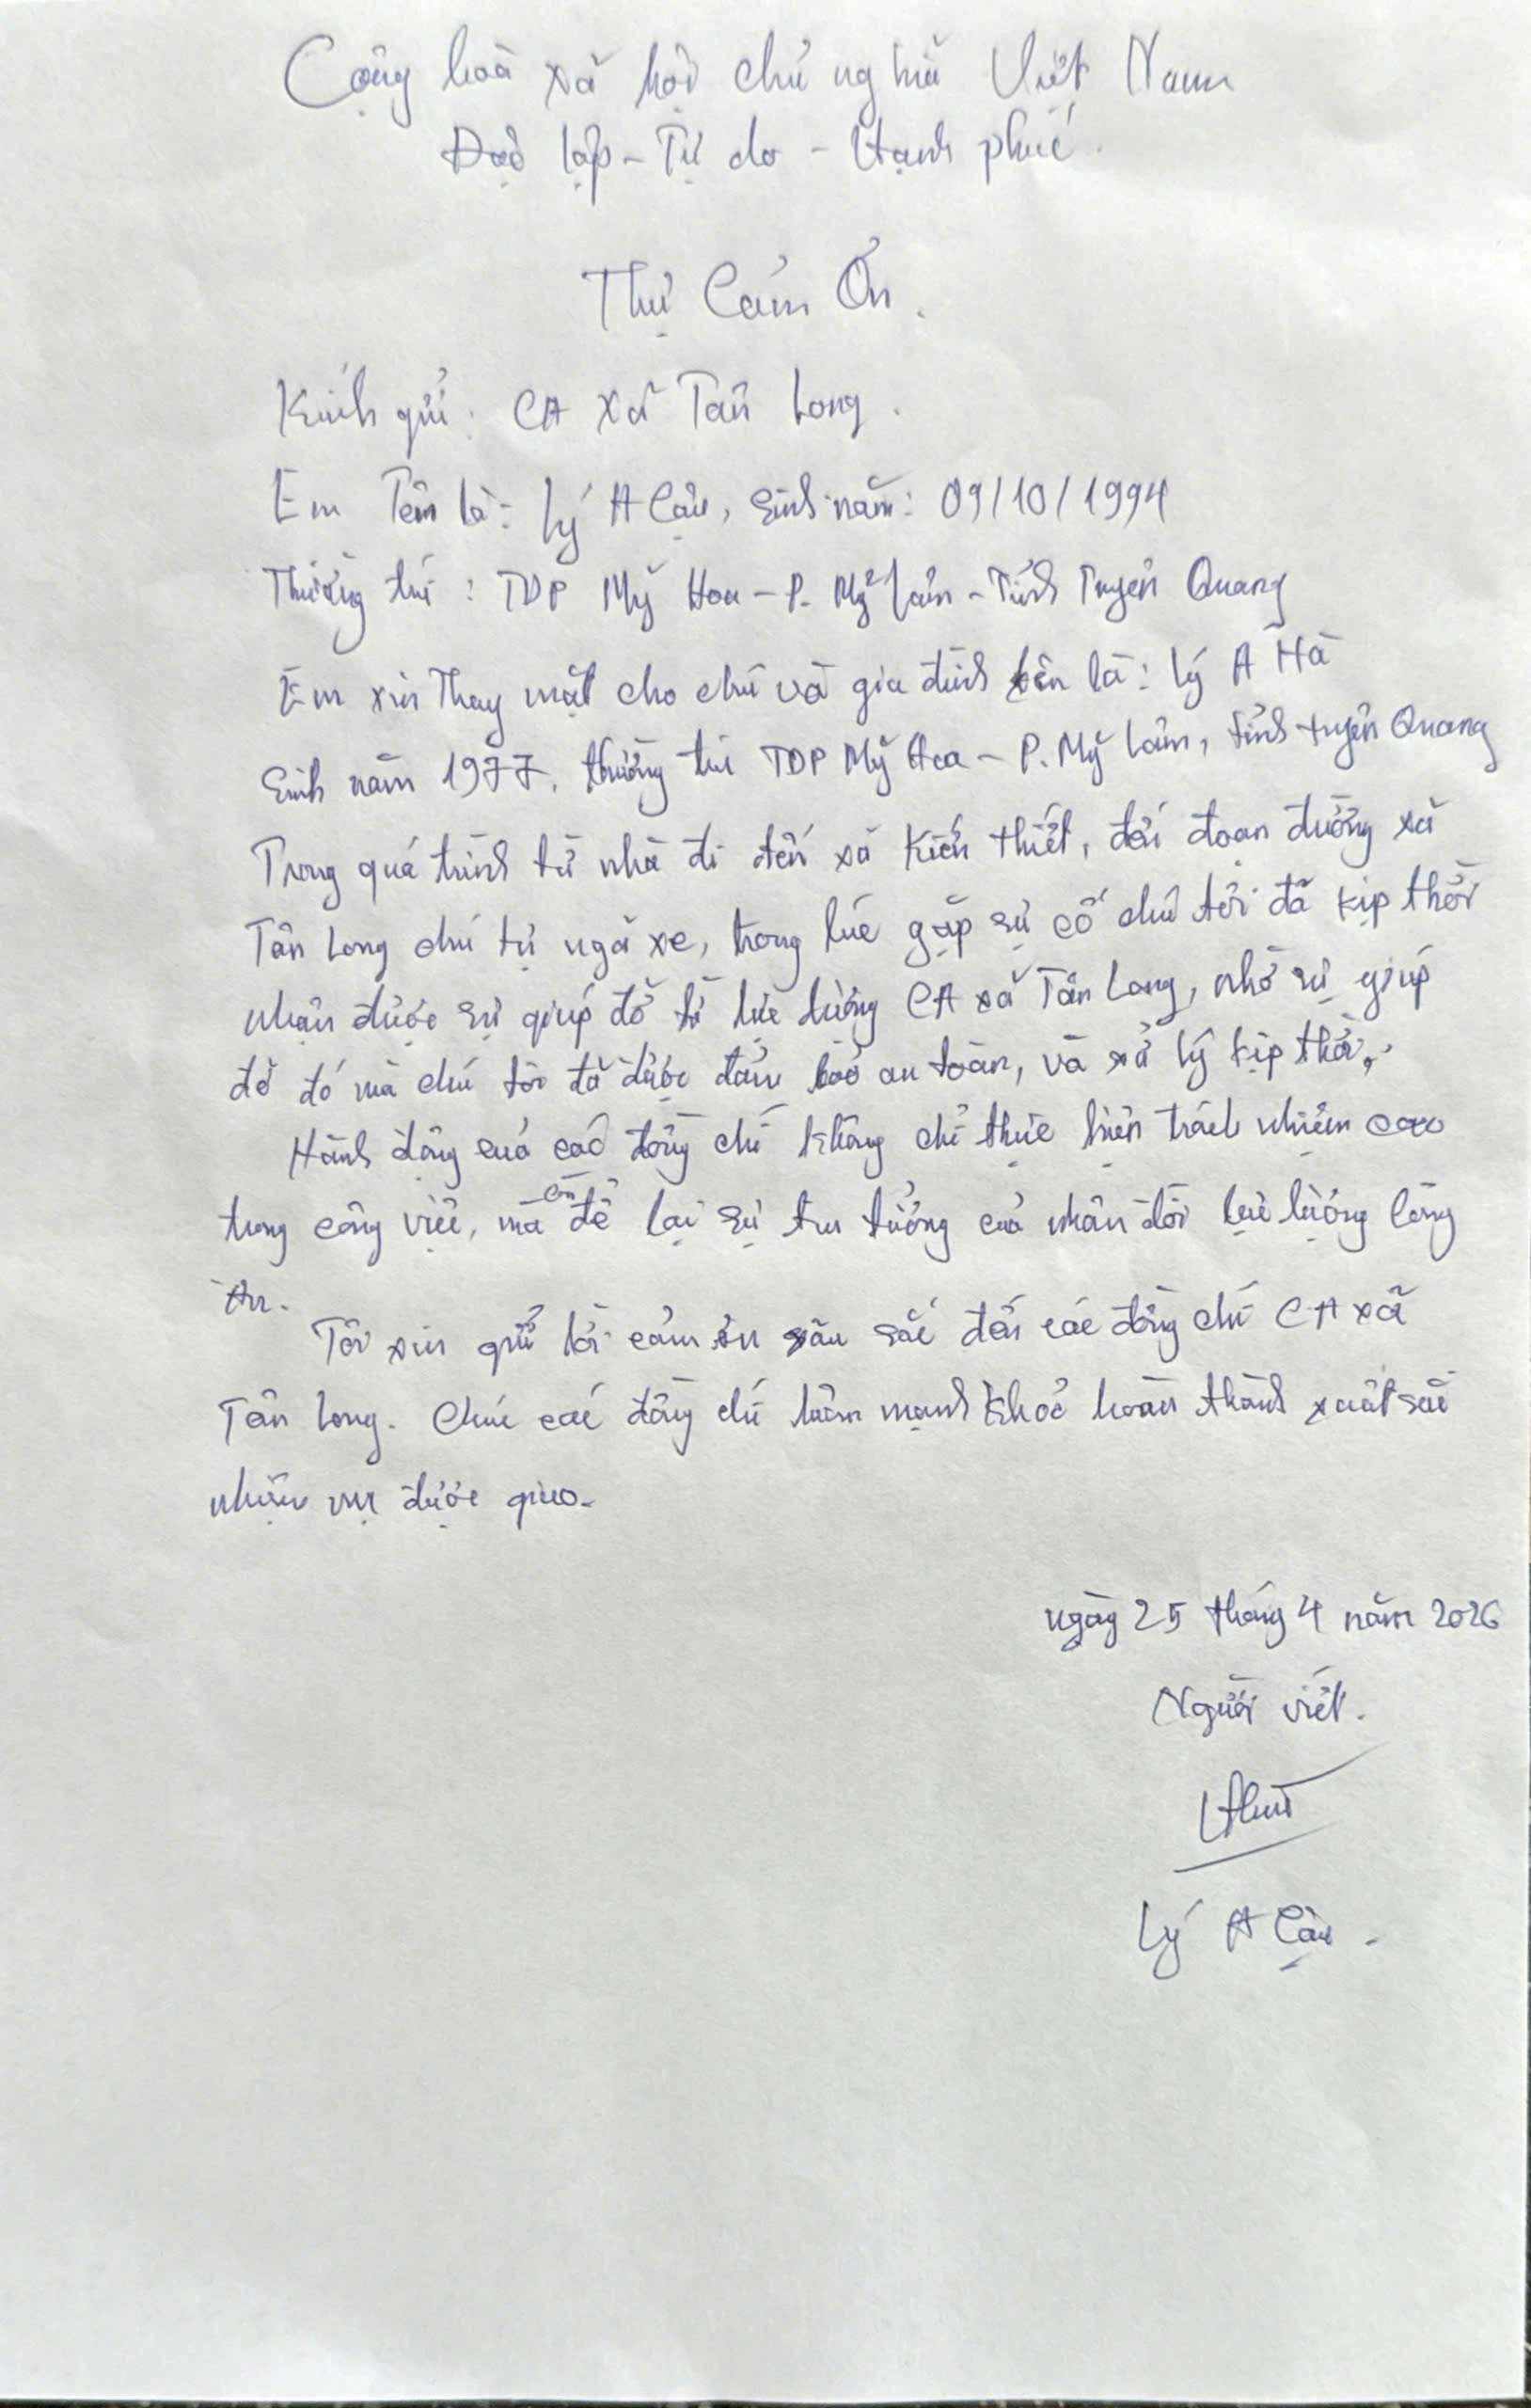 Cộng hoà xã hội chủ nghĩa Việt Nam
Độc lập - Tự do - Hạnh phúc.
Thư Cảm Ơn.
Kính gửi: CA xã Tân Long.
Em Tên là: Lý A Cậu, sinh năm: 09/10/1994
Thường trú: TDP Mỹ Hoa - P. Mỹ Lâm - Tỉnh Tuyên Quang
Em xin Thay mặt cho chú và gia đình tên là: Lý A Hà
Sinh năm 1977, thường trú TDP Mỹ Hoa - P. Mỹ Lâm, tỉnh tuyên Quang
Trong quá trình từ nhà đi đến xã Kiến thiết, đến đoạn đường xã
Tân Long chú tự ngã xe, trong lúc gặp sự cố chú tôi đã kịp thời
nhận được sự giúp đỡ từ lực lượng CA xã Tân Long, nhờ sự giúp
đỡ đó mà chú tôi đã được đảm bảo an toàn, và xử lý kịp thời.
Hành động của các đồng chí không chỉ thực hiện trách nhiệm cao
trong công việc, mà còn để lại sự tin tưởng của nhân dân lực lượng Công
An.
Tôi xin gửi lời cảm ơn sâu sắc đến các đồng chí CA xã
Tân Long. Chúc các đồng chí luôn mạnh khoẻ hoàn thành xuất sắc
nhiệm vụ được giao.
ngày 25 tháng 4 năm 2026
Người viết.
Lý A Cậu.